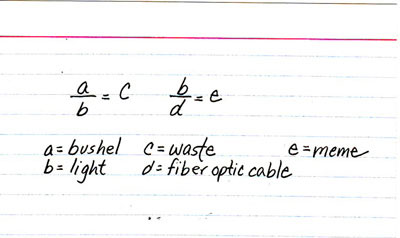 a/b = c b/d = e
a = bushel c = waste e = meme
b = light d = fiber optic cable